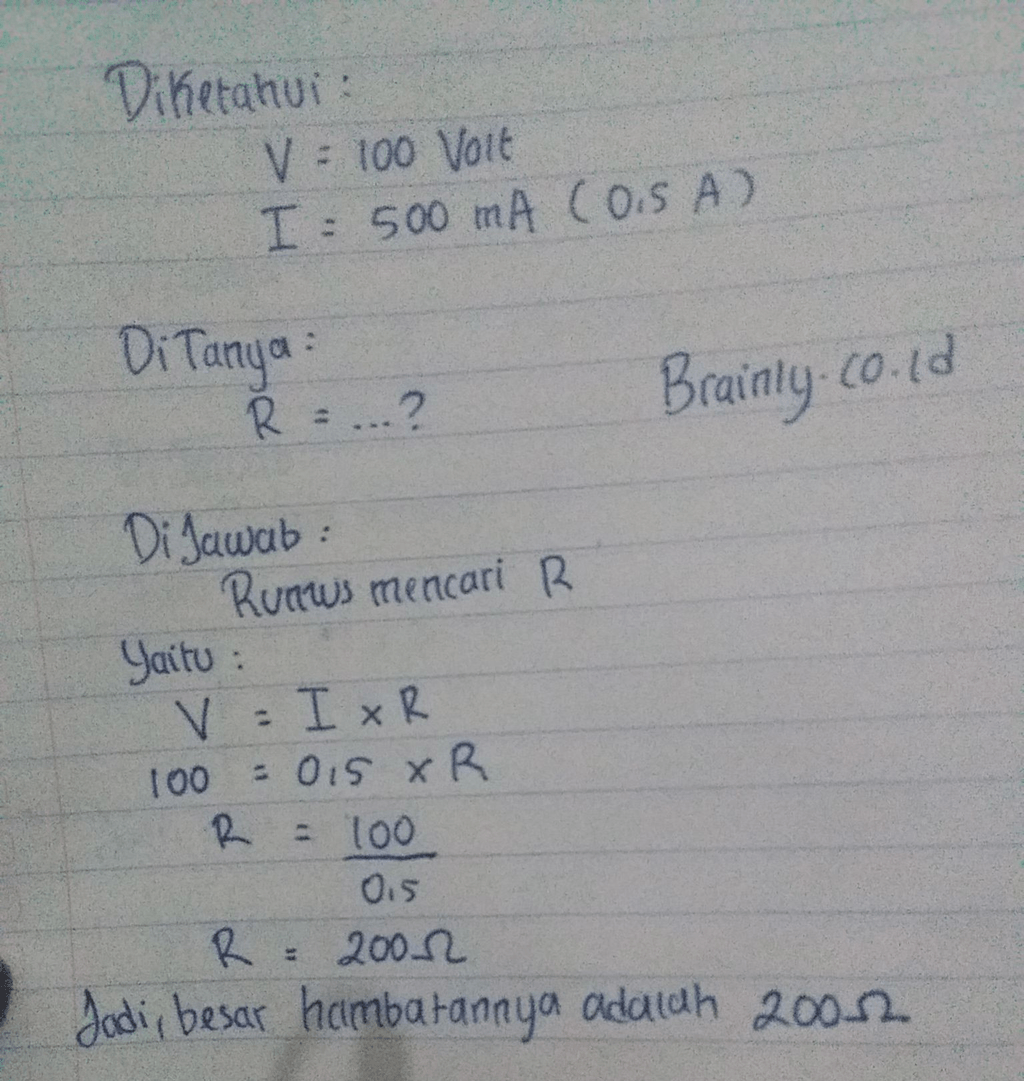 Diketahui :
V = 100 Volt
I = 500 mA ( 0,5 A )
DiTanya :
R = ...?
Brainly.co.id
DiJawab :
Rumus mencari R
Yaitu :
V = I x R
100 = 0,5 x R
R = 100
0,5
R = 200Ω
Jadi, besar hambatannya adalah 200Ω